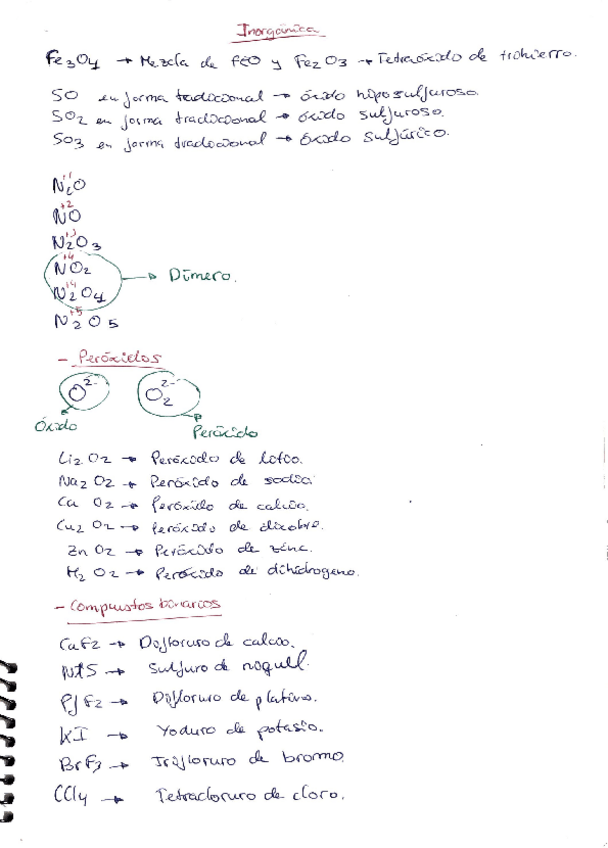 Inorgánica
Fe3O4 → Mezcla de FeO y Fe2O3 → Tetraóxido de trihierro.
SO en forma tradicional → óxido hiposulfuroso.
SO2 en forma tradicional → óxido sulfuroso.
SO3 en forma tradicional → óxido sulfúrico.
+1
N2O
+2
NO
+3
N2O3
+4
NO2 → Dímero.
+4
N2O4
+5
N2O5
- Peróxidos
O2- O2 2-
Óxido Peróxido
Li2O2 → Peróxido de litio.
Na2O2 → Peróxido de sodio
CaO2 → Peróxido de calcio.
Cu2O2 → Peróxido de dicobre.
ZnO2 → Peróxido de zinc.
H2O2 → Peróxido de dihidrogeno.
- Compuestos binarios
CaF2 → Difloruro de calcio.
NiS → Sulfuro de niquel.
F2 → Difloruro de platino.
KI → Yoduro de potasio.
BrF3 → Trifloruro de bromo.
CCl4 → Tetracloruro de cloro.